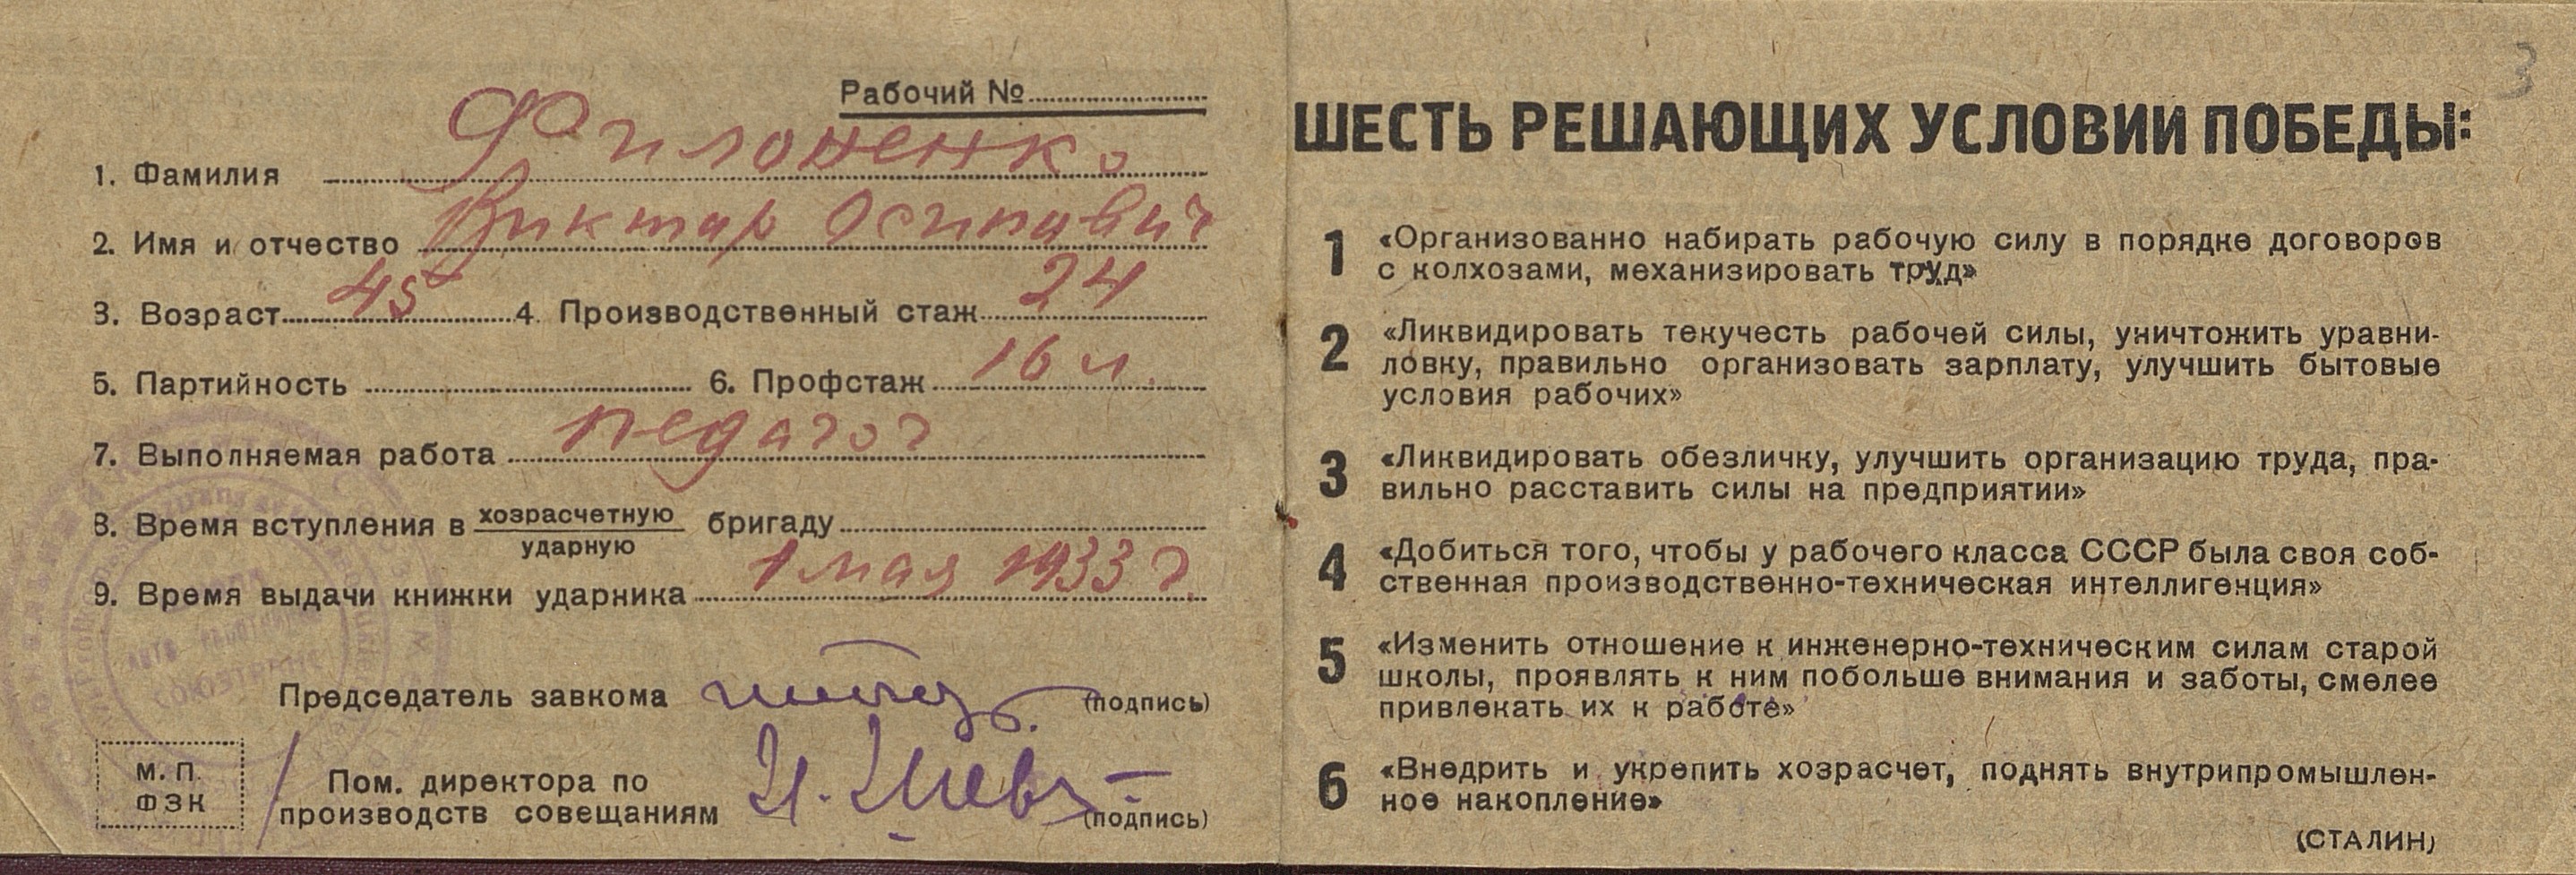 Рабочий №
1. Фамилия Филоненко
2. Имя и отчество Виктор Осипович
3. Возраст 45 4. Производственный стаж 24
5. Партийность 6. Профстаж 16 л.
7. Выполняемая работа педагог
8. Время вступления в хозрасчетную бригаду
ударную
9. Время выдачи книжки ударника 1 мая 1933 г.
Председатель завкома (подпись)
М. П.
ФЗК
Пом. директора по
производств совещаниям (подпись)
СОЮЗТРАНС
3
ШЕСТЬ РЕШАЮЩИХ УСЛОВИИ ПОБЕДЫ:
1 «Организованно набирать рабочую силу в порядке договоров
с колхозами, механизировать труд»
2 «Ликвидировать текучесть рабочей силы, уничтожить уравни-
ловку, правильно организовать зарплату, улучшить бытовые
условия рабочих»
3 «Ликвидировать обезличку, улучшить организацию труда, пра-
вильно расставить силы на предприятии»
4 «Добиться того, чтобы у рабочего класса СССР была своя соб-
ственная производственно-техническая интеллигенция»
5 «Изменить отношение к инженерно-техническим силам старой
школы, проявлять к ним побольше внимания и заботы, смелее
привлекать их к работе»
6 «Внедрить и укрепить хозрасчет, поднять внутрипромышлен-
ное накопление»
(СТАЛИН)